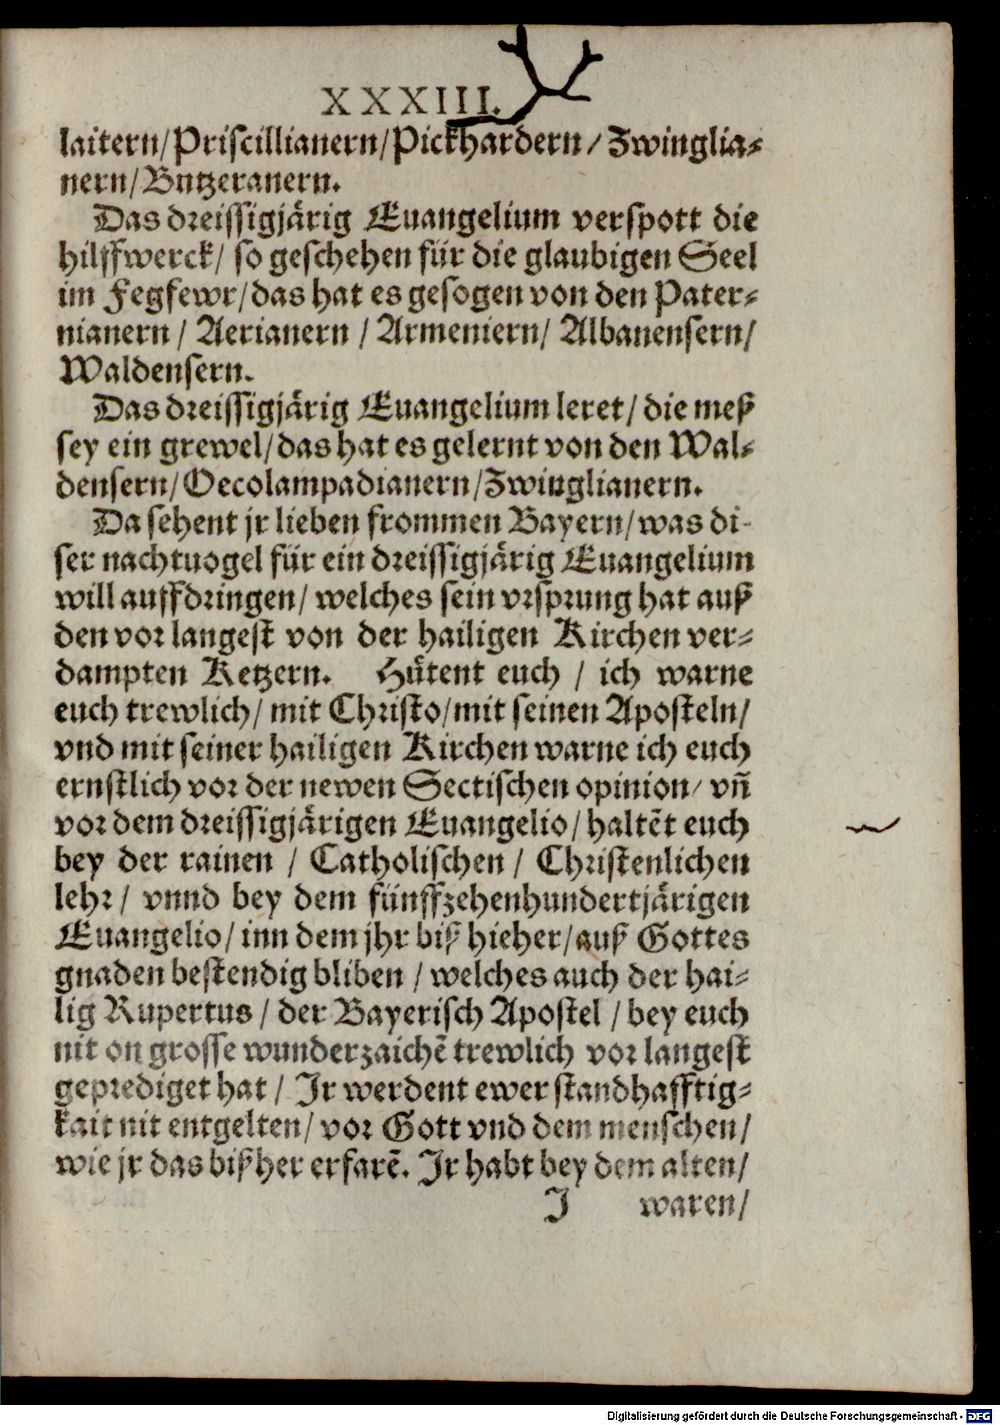 XXXIII.
laitern/Priscillianern/Pickhardern/Zwinglia⸗
nern/Butzeranern.
Das dreissigjärig Euangelium verspott die
hilffwerck/ so geschehen für die glaubigen Seel
im Fegfewr/das hat es gesogen von den Pater⸗
nianern/ Aerianern / Armeniern/ Albanensern/
Waldensern.
Das dreissigjärig Euangelium leret/ die meß
sey ein grewel/das hat es gelernt von den Wal⸗
densern/Oecolampadianern/Zwinglianern.
Da sehent jr lieben frommen Bayern/was di-
ser nachtuogel für ein dreissigjärig Euangelium
will auffdringen/ welches sein vrsprung hat auß
den vor langest von der hailigen Kirchen ver⸗
dampten Ketzern. Hütent euch / ich warne
euch trewlich/ mit Christo/mit seinen Aposteln/
vnd mit seiner hailigen Kirchen warne ich euch
ernstlich vor der newen Sectischen opinion/ vñ
vor dem dreissigjärigen Euangelio/ haltẽt euch
bey der rainen / Catholischen / Christenlichen
lehr/ vnnd bey dem fünffzehenhundertjärigen
Euangelio/ inn dem jhr biß hieher/auß Gottes
gnaden bestendig bliben / welches auch der hai⸗
lig Rupertus / der Bayerisch Apostel / bey euch
nit on grosse wunderzaichẽ trewlich vor langest
geprediget hat / Jr werdent ewer standhafftig⸗
kait nit entgelten/ vor Gott vnd dem menschen/
wie jr das bißher erfarẽ. Jr habt bey dem alten/
J waren/
Digitalisierung gefördert durch die Deutsche Forschungsgemeinschaft - DFG